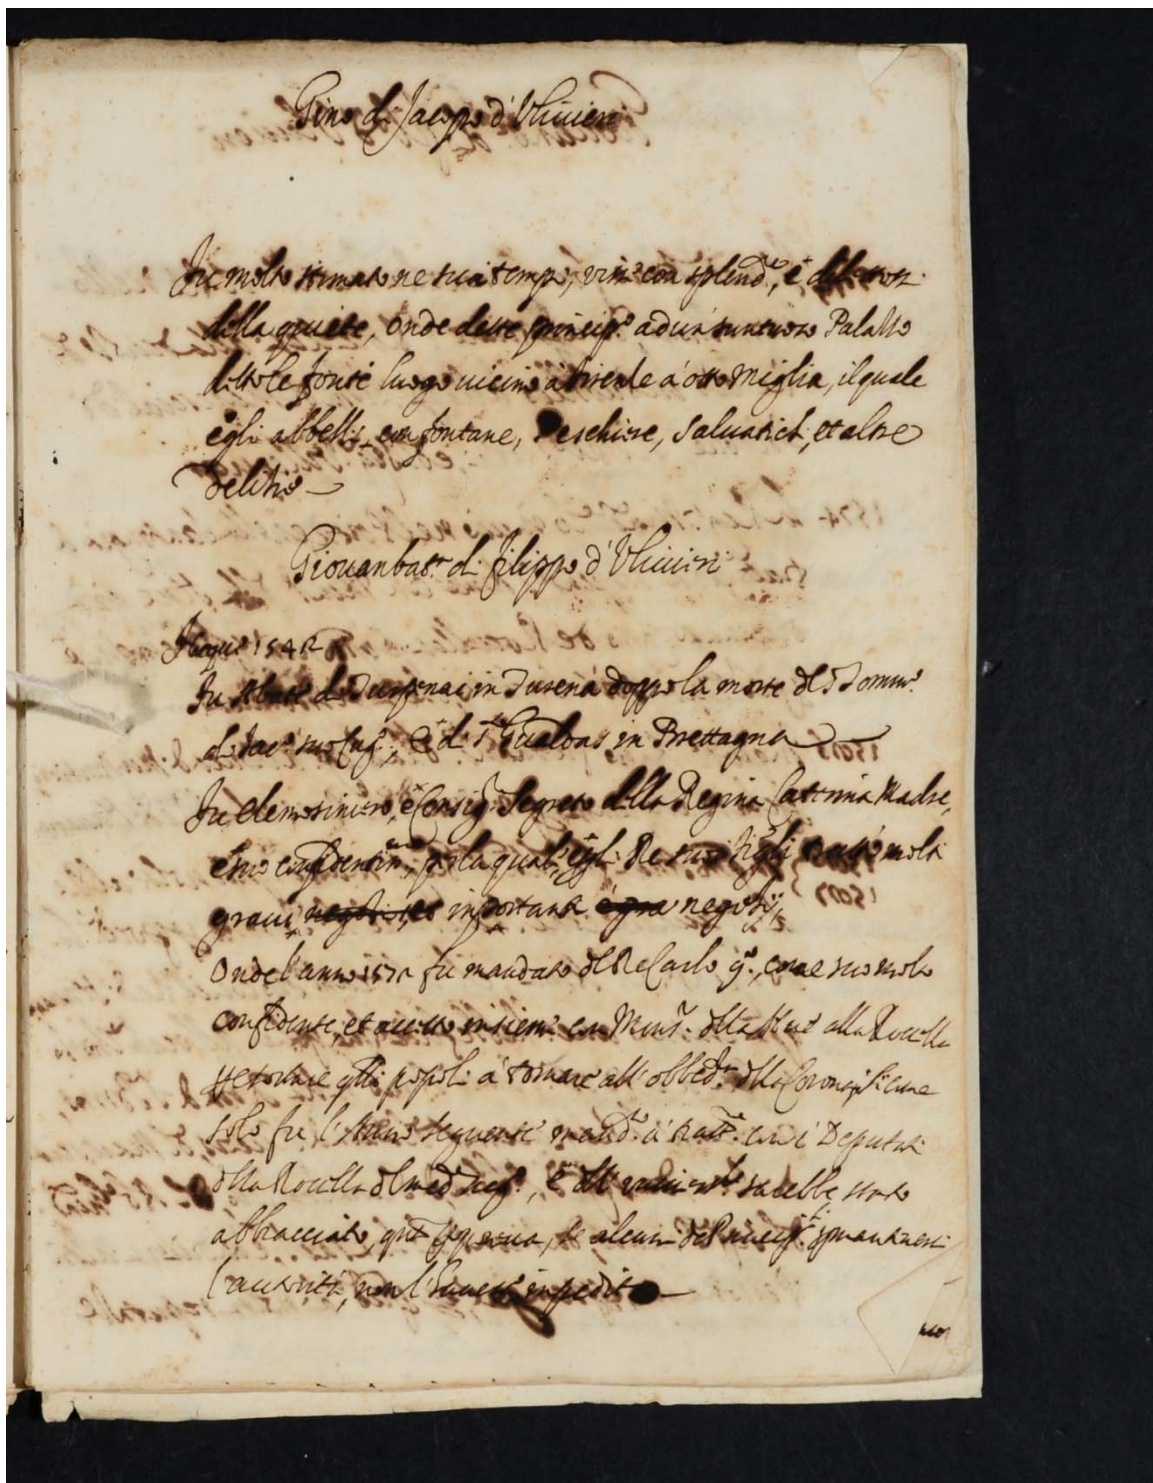 Gino di Jacopo d'Ulivieri
Fu molto stimato ne suoi tempi, visse con splend.re, e
della quiete, onde dette princip.o ad un suntuoso Palazzo
detto le fonti luogo vicino a Firenze a otto Miglia, il quale
egli abbellì con fontane, Peschiere, salvatichi, et altre
delitie
Giovanbatt.a di Filippo d'Ulivieri
Nacque 1542
Fu Abate di in Turena doppo la morte del
di Jac.o suo, e di S. Gualdas in Brettagna
Fu elemosiniero, e Consig.r Segreto della Regina Caterina Madre,
e suo, per la quale, e gl. Re suoi figli molti
gravi negotii, et importanti e gra negotij,
Onde l'anno 157 fu mandato del Re Carlo 9.o, come suo molto
confidente, et accetto insieme con Mons.r della alla Roccella
p ridurre q.lli popoli a tornare all'obbed.a della Corona, si come
solo fu l'Anno seguente mand.o a tratt.e con i Deputati
della Roccella, e sarebbe stato
abbracciato, se alcuni de Princip.i p mantenersi
l'autorità, non l'havessi impedito